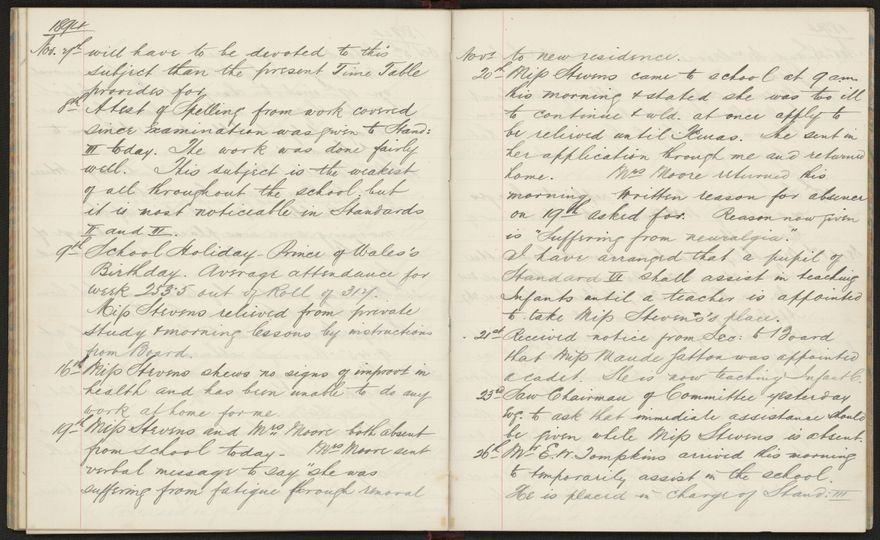 1894
Nov. 7th will have to be devoted to this
subject than the present Time Table
provides for
8th A test of Spelling from work covered
since examination was given to Stand:
III today. The work was done fairly
well. This subject is the weakest
of all throughout the school, but
it is most noticeable in Standards
II and III.
9th School Holiday - Prince of Wales's
Birthday. Average attendance for
week 253.5 out of Roll of 314.
Miss Stevens relieved from private
study & morning lessons by instructions
from Board.
16th Miss Stevens shews no signs of improvt in
health and has been unable to do any
work at home for me
19th Miss Stevens and Mrs Moore both absent
from school today - Mrs Moore sent
verbal message to say "she was
suffering from fatigue through removal
Novr to new residence.
20th Miss Stevens came to school at 9 am
this morning & stated she was too ill
to continue & wld. at once apply to
be relieved until Xmas. She sent in
her application through me and returned
home. Mrs Moore returned this
morning Written reason for absence
on 19th asked for. Reason now given
is "Suffering from neuralgia".
I have arranged that a pupil of
Standard VI shall assist in teaching
Infants until a teacher is appointed
to take Miss Stevens's place.
21st Received notice from Sec: to Board
that Miss Maude Jatton was appointed
a cadet. She is now teaching Infant C.
23rd Saw Chairman of Committee yesterday
to ask that immediate assistance should
be given while Miss Stevens is absent.
26th Mr E. W. Tompkins arrived this morning
to temporarily assist in the school.
He is placed in charge of Stand: III